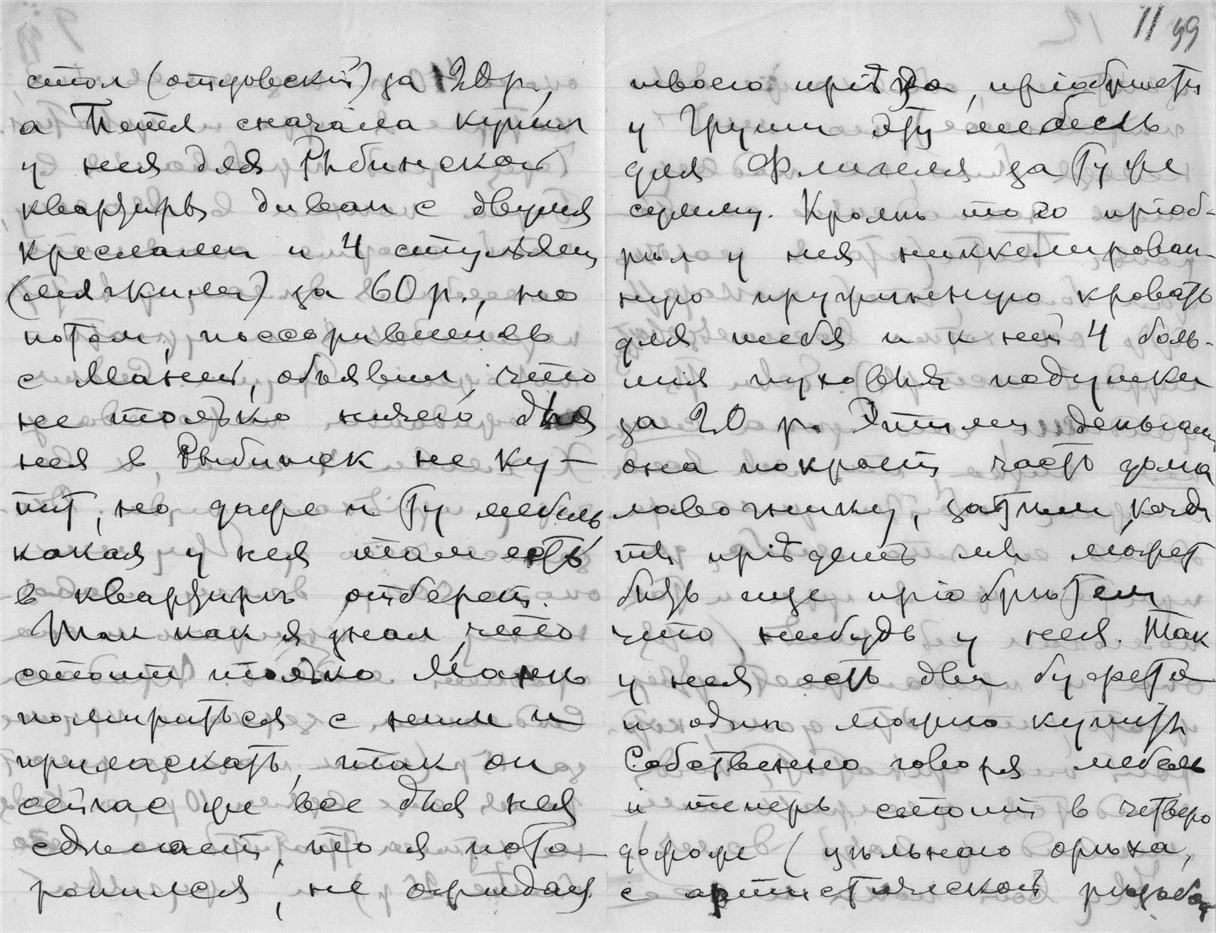 стол (отцовскій) за 120 р.,
а Петя сначала купил
у нея для Рыбинской
квартиры диван с двумя
креслами и 4 стульями
(мягкими) за 60 р., но
потом, поссорившись
с Маней, объявил, что
не только ничего для
нея в Рыбинск не ку-
пит, но даже и ту мебель
какая у нея там есть
в квартирѣ отберет.
Так как я знал, что
стоит только Манѣ
помириться с ним и
приласкать, так он
сейчас же все для нея
сдѣлает, то я пото-
ропился, не ожидая
11 99
твоего пріѣзда, пріобрѣсти
у Груши эту мебель
для Флигеля за ту же
сумму. Кромѣ того пріоб-
рил у нея никкелирован-
ную пружинную кровать
для тебя и к ней 4 боль-
шія пуховыя подушки
за 20 р. Этими деньгами
она покроет часть долга
лавочнику, затѣм, когда
ты пріѣдешь мы может
быть еще пріобрѣтем
что нибудь у нея. Так
у нея есть два буфета
и один можно купить
Собственно говоря мебель
и теперь стоит в четверо
дороже (цѣльнаго орѣха,
с артистической рѣзьбой